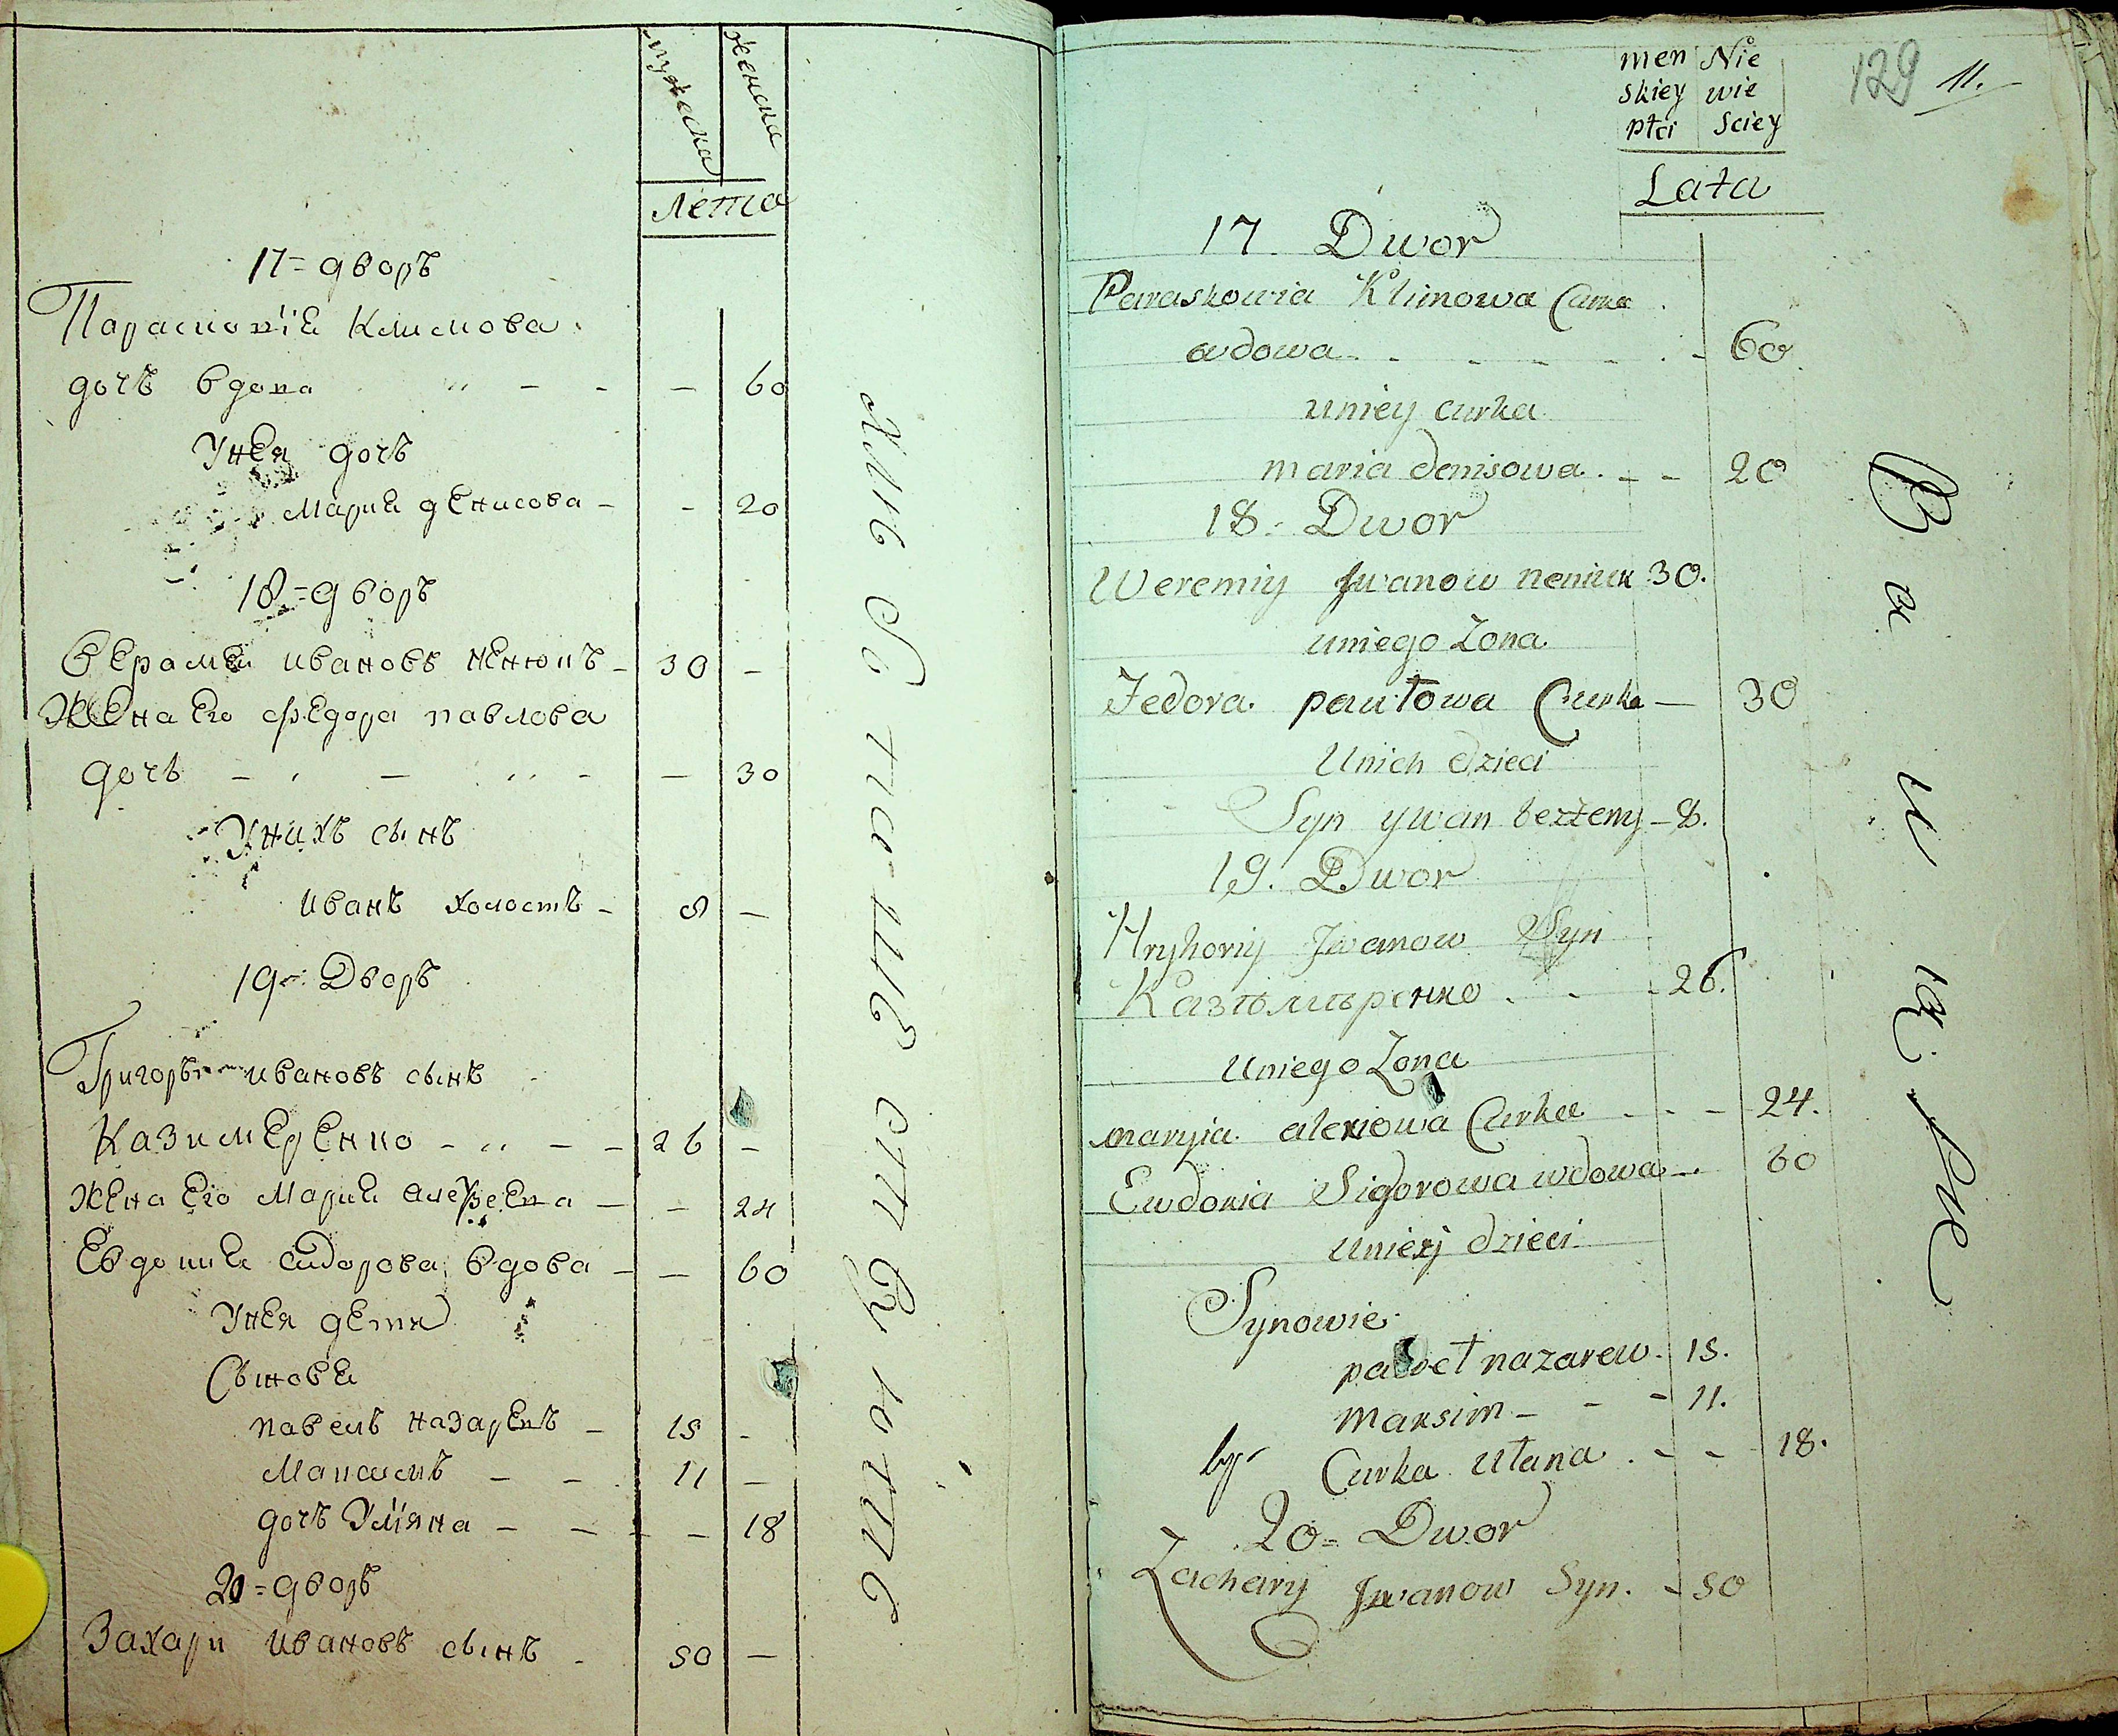 мужеска
женска
лета
17 = дворъ
Парасковія Климова
дочь вдова 60
У нея дочь
Мария денисова 20
18 = дворъ
Верамей ивановъ Ненюкъ 30
Жена Его федора павлова
дочь 30
У нихъ сынъ
иванъ холостъ 8
19 = Дворъ
Григорей ивановъ сынъ
Казимеренко 26
Жена Его Мария 24
Евдокия Сидорова вдова 60
У нея дети
Сынове
павелъ назаревъ 15
Максимъ 11
дочь Уліяна 18
20 = дворъ
Захари ивановъ сынъ 50
129 11.
men Nie
skiey wie
płci Sciey
Lata
17 Dwor
Paraskowia Klimowa Curka
wdowa 60
uniey curka
maria denisowa 20
18 = Dwor
Weremiy Jwanow neniuk 30.
uniego Zona
Fedora pawłowa Curka 30
Unich dzieci
Syn ywan bezżeny 8.
19. Dwor
Hryhoriy Jwanow Syn
Казъмъренко 26.
Uniego Zona
maryia alexiowa Curka 24.
Ewdoxia Sidorowa wdowa 60
Unieij dzieci
Synowie
paweł nazarew 15.
Maxsim 11.
Curka Ulana 18.
20 = Dwor
Zachariy Jwanow Syn. 50